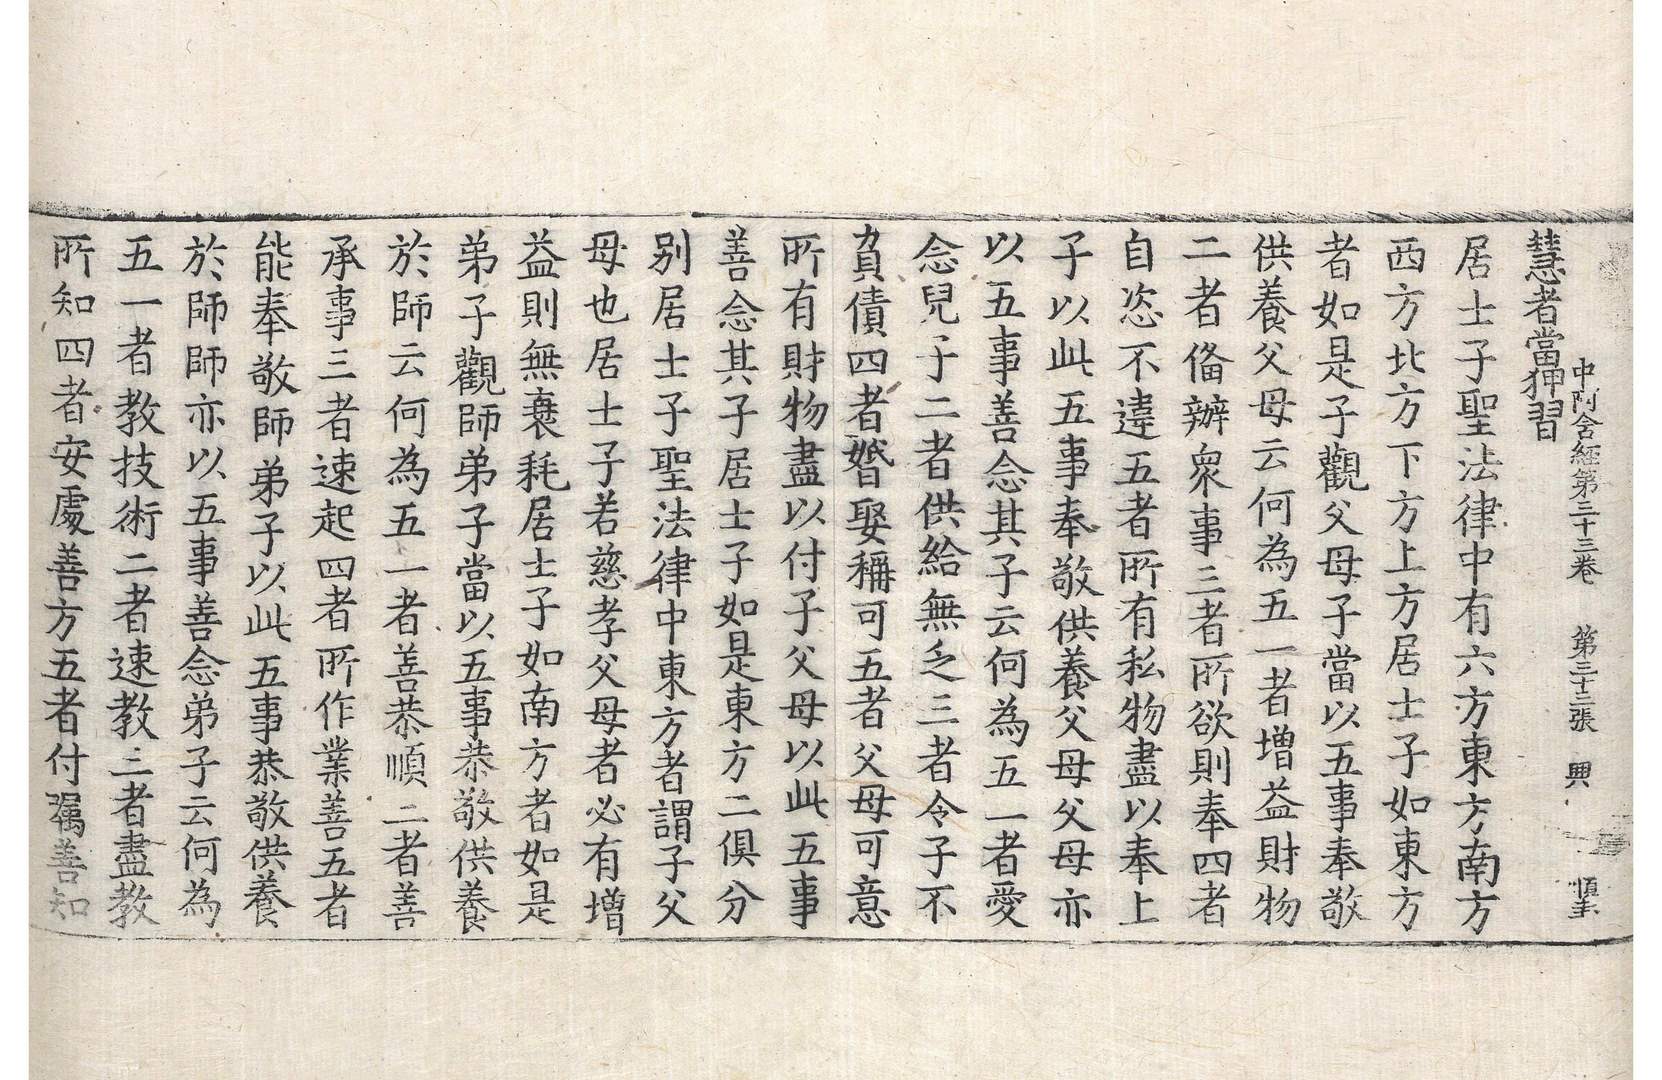 中阿含經第三十三卷 第三十二張 興
慧者當狎習
居士子聖法律中有六方東方南方
西方北方下方上方居士子如東方
者如是子觀父母子當以五事奉敬
供養父母云何為五一者增益財物
二者俻辦衆事三者所欲則奉四者
自恣不違五者所有私物盡以奉上
子以此五事奉敬供養父母父母亦
以五事善念其子云何為五一者愛
念兒子二者供給無乏三者令子不
負債四者婚娶稱可五者父母可意
所有財物盡以付子父母以此五事
善念其子居士子如是東方二俱分
别居士子聖法律中東方者謂子父
母也居士子若慈孝父母者必有增
益則無衰耗居士子如南方者如是
弟子觀師弟子當以五事恭敬供養
於師云何為五一者善恭順二者善
承事三者速起四者所作業善五者
能奉敬師弟子以此五事恭敬供養
於師師亦以五事善念弟子云何為
五一者教技術二者速教三者盡教
所知四者安處善方五者付囑善知